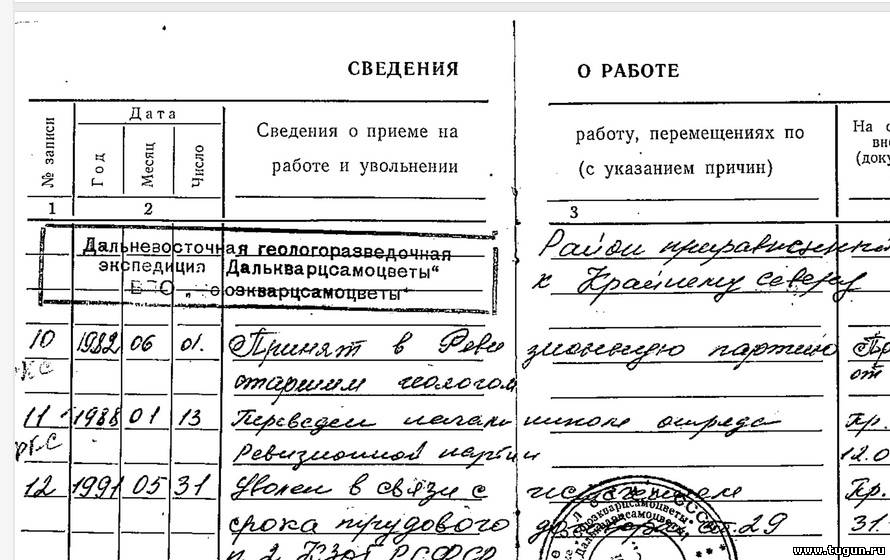 СВЕДЕНИЯ О РАБОТЕ
№ записи
Дата
Год
Месяц
Число
Сведения о приеме на работу, перемещениях по
работе и увольнении (с указанием причин)
На
(доку
1 2 3
Дальневосточная геологоразведочная
экспедиция „Далькварцсамоцветы“
Район приравненный
к Крайнему северу
10 1982 06 01. Принят в Ревизионную партию
старшим геологом от
11 1988 01 13 Переведен начальником отряда Пр.
Ревизионной партии 12.0
12 1991 05 31 Уволен в связи с истечением Пр.
срока трудового ст. 29 31.
п 2 КЗОТ РСФСР
СССР
Далькварцсамоцветы
www.tugun.ru